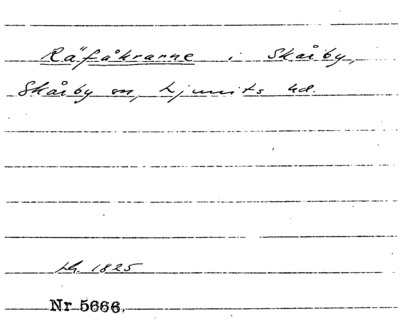 Räfåkrarne i Skårby,
Skårby sn, Ljunits hd.
Lh. 1825
Nr 5666.